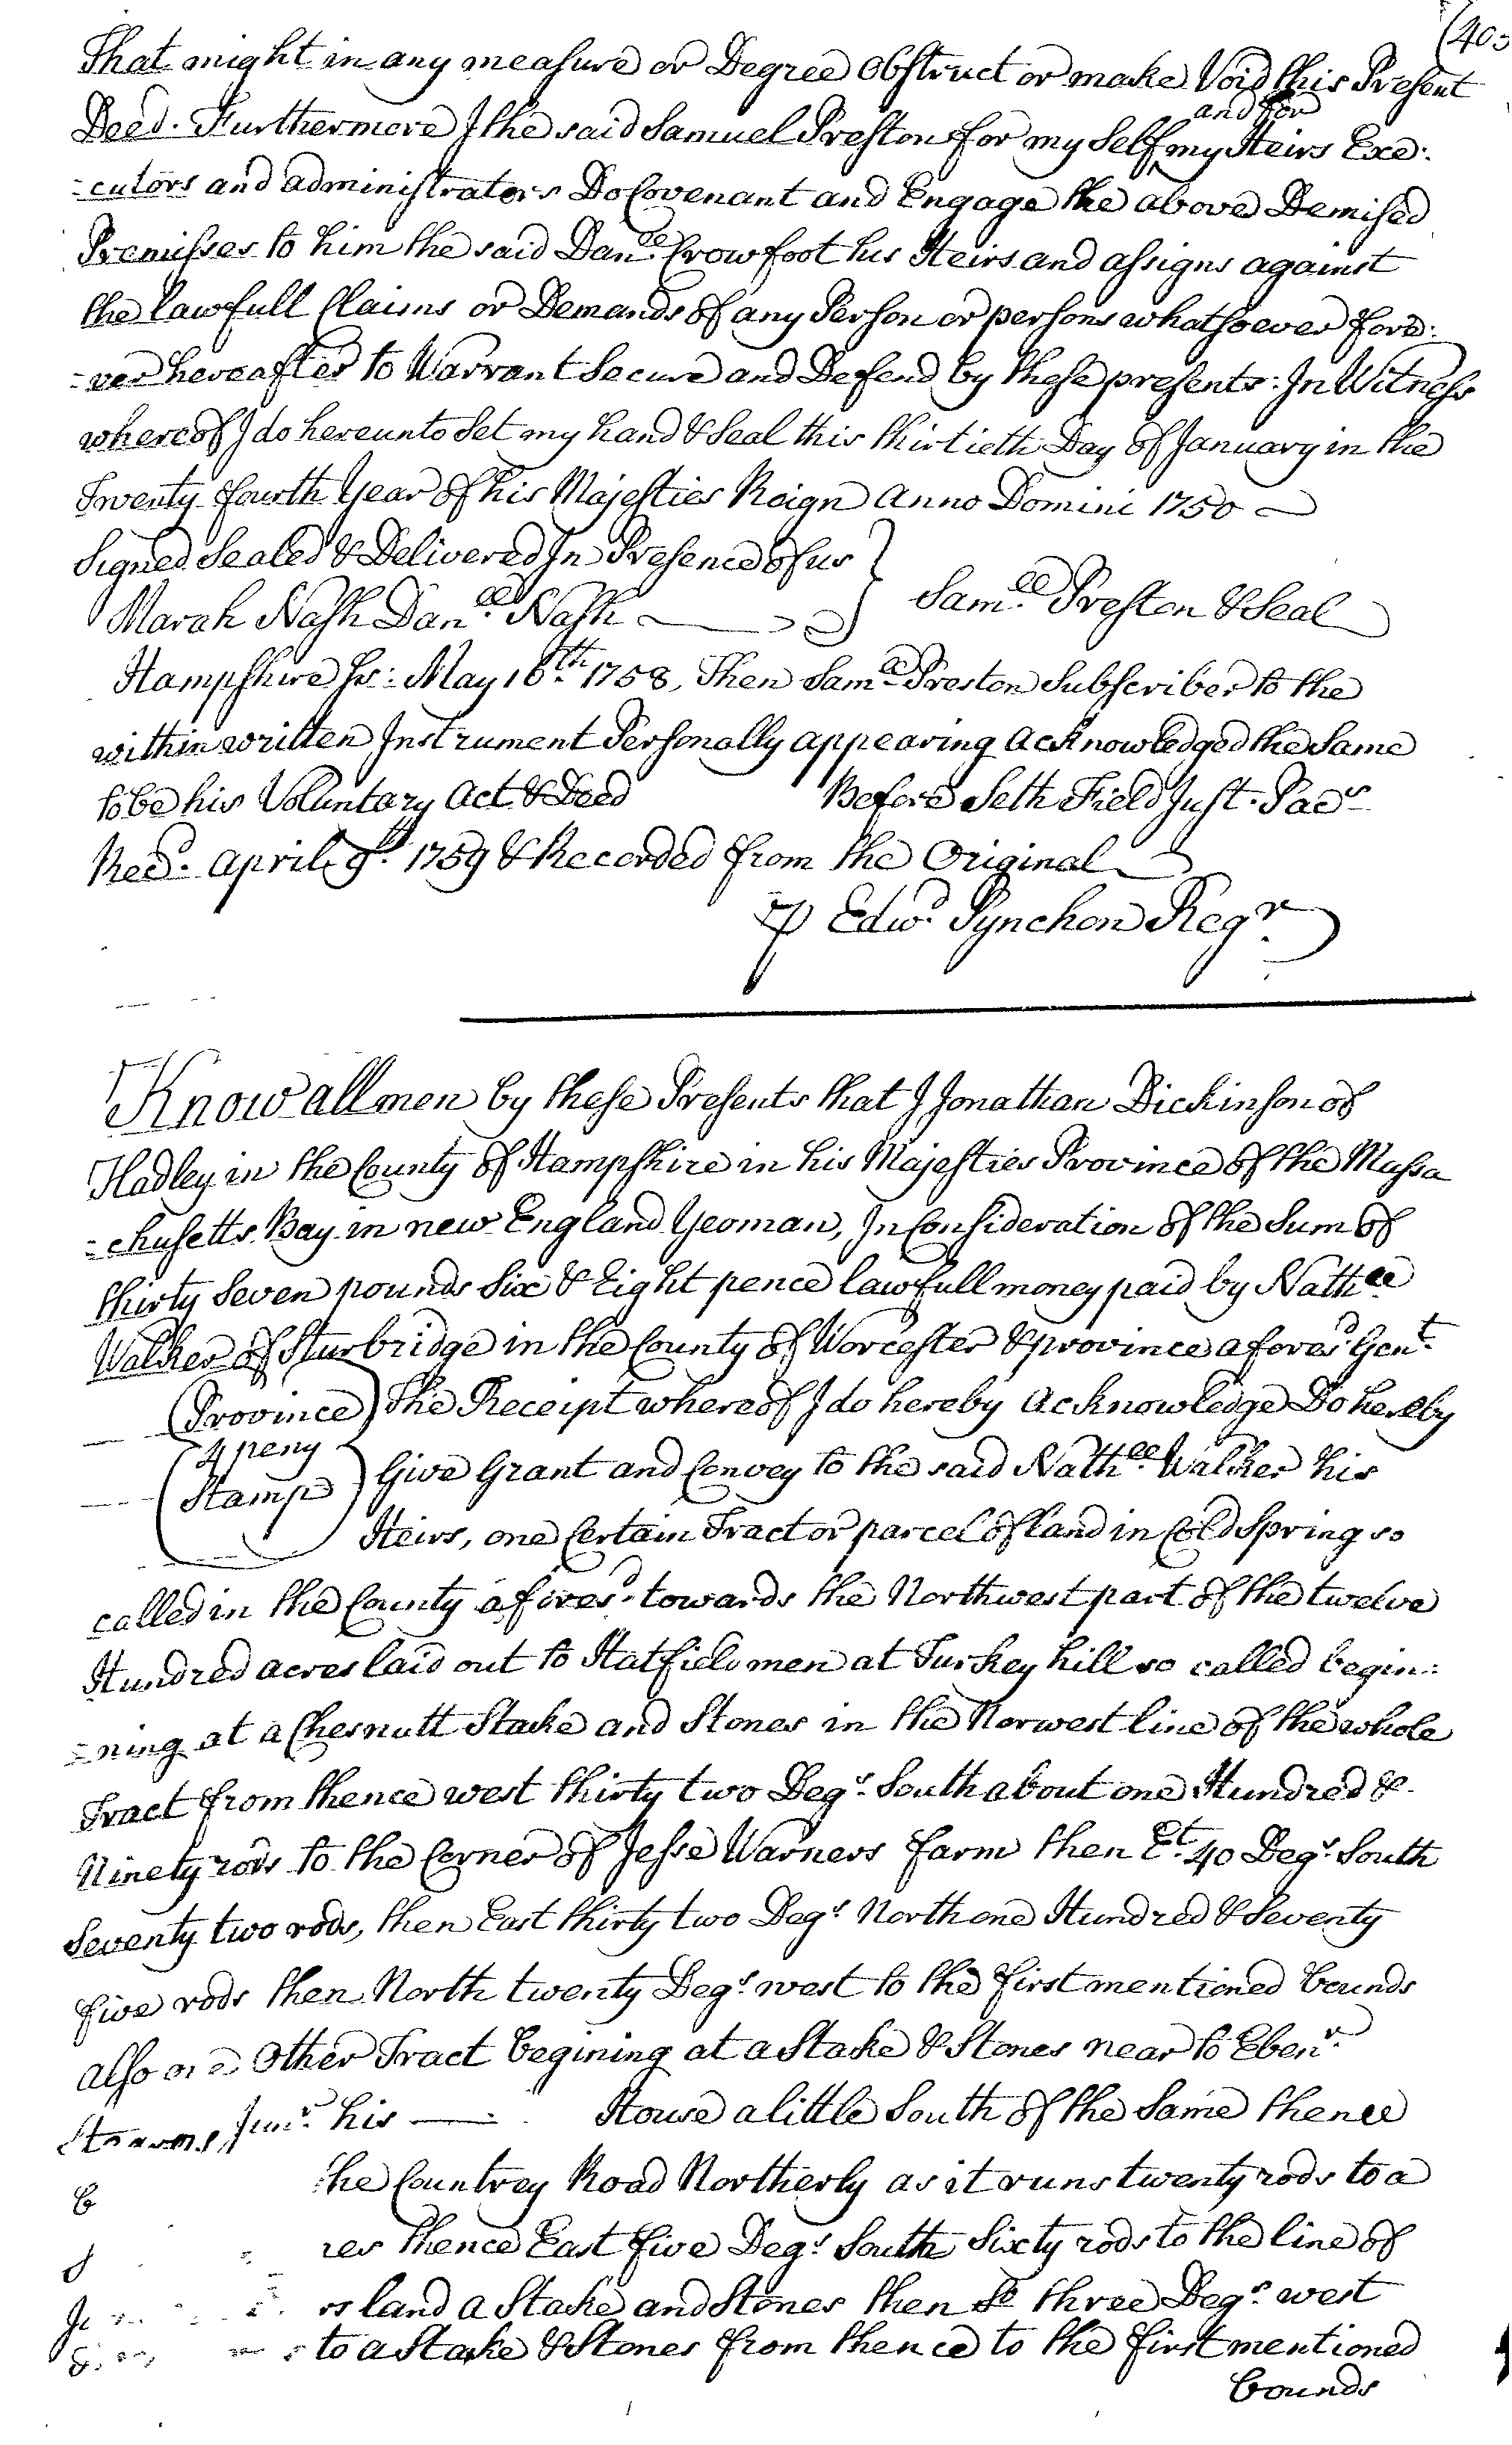 (405
That might in any measure or Degree Obstruct or make Void this Present
Deed. Furthermore I the said Samuel Preston for my Self and for my Heirs Exe:
=cutors and administrators Do Covenant and Engage the above Demised
Premisses to him the said Danll. Crowfoot his Heirs and assigns against
the lawfull Claims or Demands of any Person or persons whatsoever fore:
=ver hereafter to Warrant Secure and Defend by these presents: In Witness
whereof I do hereunto Set my hand & Seal this thirtieth Day of January in the
Twenty fourth Year of his Majesties Reign Anno Domini 1750
Signed Sealed & Delivered In Presence of us
Marah Nash Danll. Nash
Samll. Preston & Seal
Hampshire Ss: May 16th. 1758, Then Samll. Preston Subscriber to the
within written Instrument Personally appearing Acknowledged the Same
to be his Voluntary Act & Deed Before Seth Field Just. Pacs
Recd. April 9th. 1759 & Recorded from the Original
℘ Edwd. Pynchon Regr.
Know all men by these Presents that I Jonathan Dickinson of
Hadley in the County of Hampshire in his Majesties Province of the Massa
=chusetts Bay in new England Yeoman, In Consideration of the Sum of
thirty Seven pounds Six & Eight pence lawfull money paid by Nathll
Walker of Sturbridge in the County of Worcester & province aforesd Gent.
(Province) The Receipt whereof I do hereby Acknowledge Do hereby
4 peny
Stamp
Give Grant and Convey to the said Nathll. Walker his
Heirs, one Certain Tract or parcel of land in Cold Spring so
called in the County aforesd. towards the Northwest part of the twelve
Hundred acres laid out to Hatfield men at Turkey hill so called begin:
=ning at a Chesnutt Stake and Stones in the Norwest line of the whole
Tract from thence west thirty two Degs. South about one Hundred &
Ninety rods to the Corner of Jesse Warners Farm then Et. 40 Degs. South
Seventy two rods, then East thirty two Degs. North one Hundred & Seventy
five rods then North twenty Degs. west to the first mentioned bounds
also one Other Tract begining at a Stake & Stones near to Ebenr.
Stearns Junr. his House a little South of the Same thence
he Countrey Road Northerly as it runs twenty rods to a
es thence East five Degs. South Sixty rods to the line of
rs land a Stake and Stones then So three Degs. west
to a Stake & Stones from thence to the first mentioned
bounds